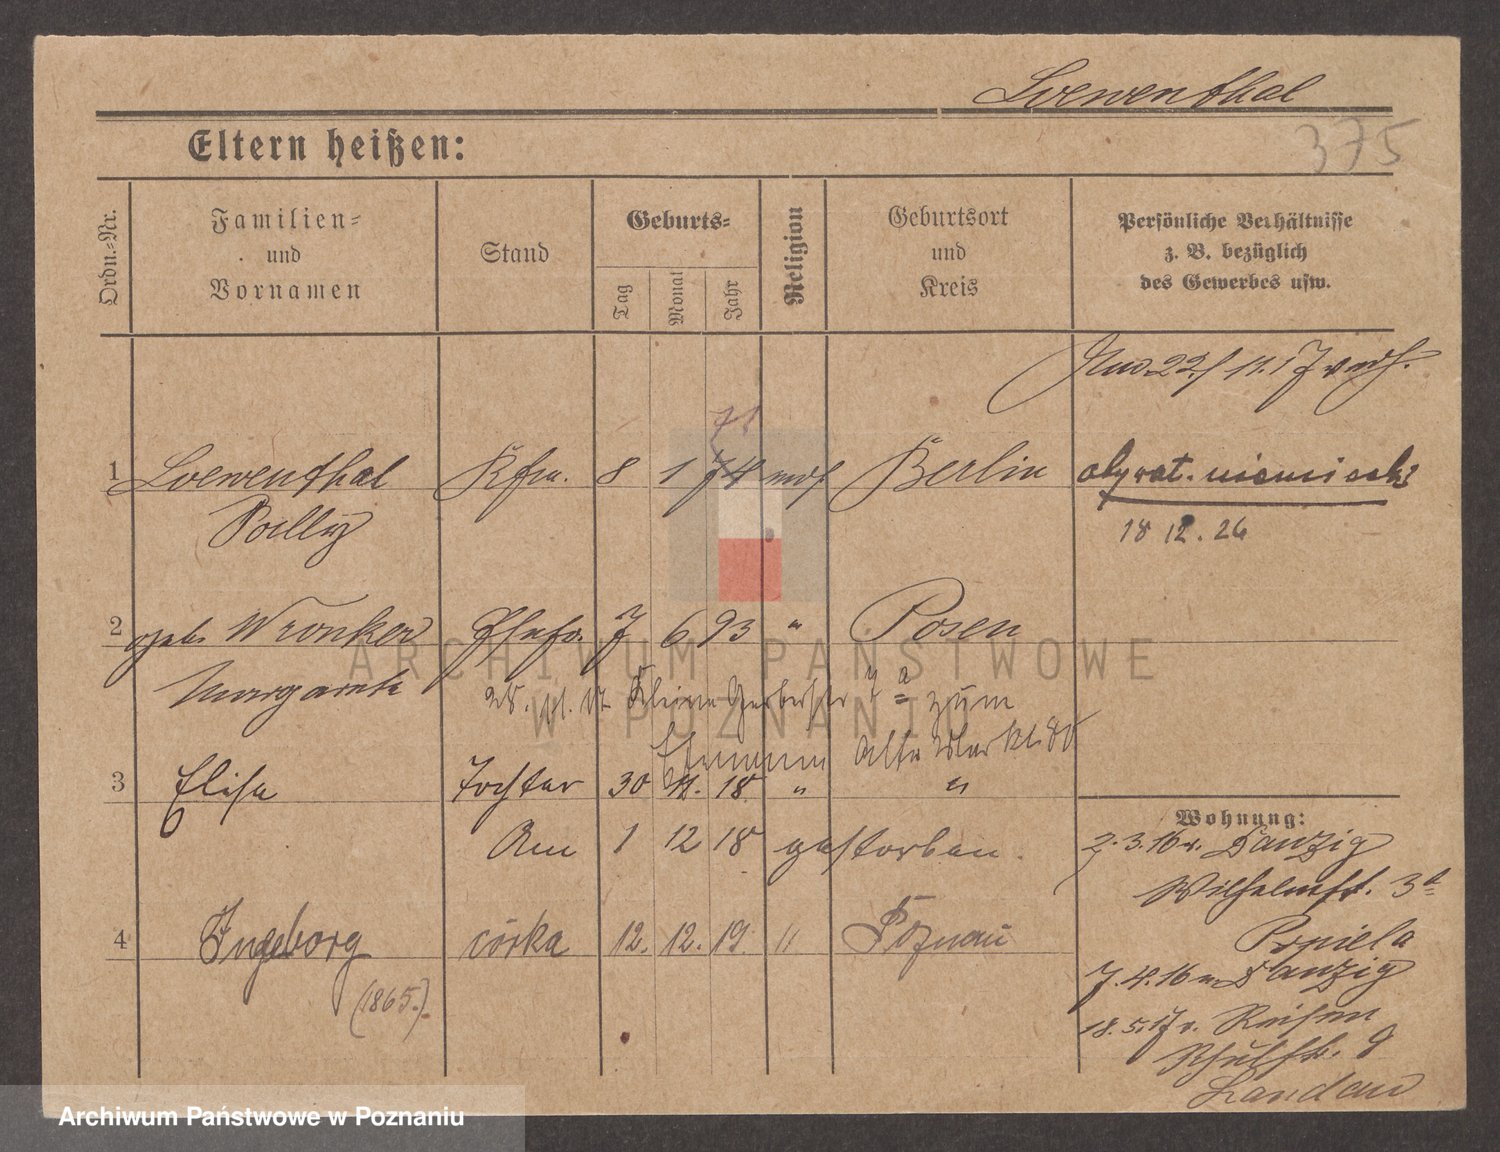 Loewenthal
375
Eltern heißen:
Ordn.-Nr.
Familien-
und
Vornamen
Stand
Geburts-
Tag
Monat
Jahr
Religion
Geburtsort
und
Kreis
Persönliche Verhältnisse
z. B. bezüglich
des Gewerbes usw.
22./11.17
71
1 Loewenthal Kfm. 8 1 74 mos. Berlin obywat. niemiecki
Pailly
18 12. 26
2 geb. Wronker Ehefr. 7 6 93 " Posen
Margarete
Kleine Gerberstr 7 a zum
Ehemann Alte Markt 80
3 Elise Tochter 30 11. 18 " "
Am 1 12 18 gestorben.
Wohnung:
2.3.16 v. Danzig
Wilhelmstr. 3a
4 Ingeborg córka 12. 12. 19. " Poznań
Popiela
(1865.)
7.4.16 n Danzig
18.5.17 v. Reisen
Schulstr. 9
Landau
ARCHIWUM PAŃSTWOWE
W POZNANIU
Archiwum Państwowe w Poznaniu